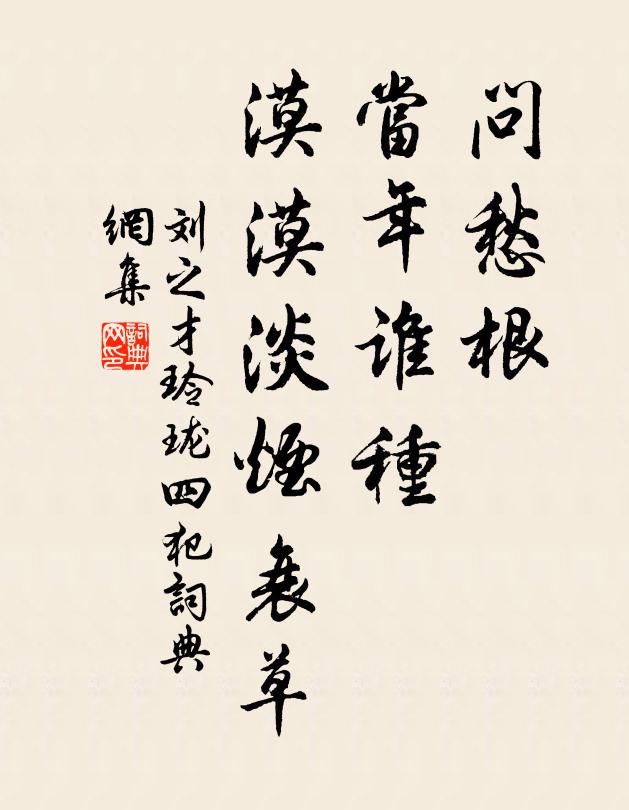 問愁根
當年誰種
漠漠淡煙衰草
刘之才玲珑四犯詞典
網集
詞典網印